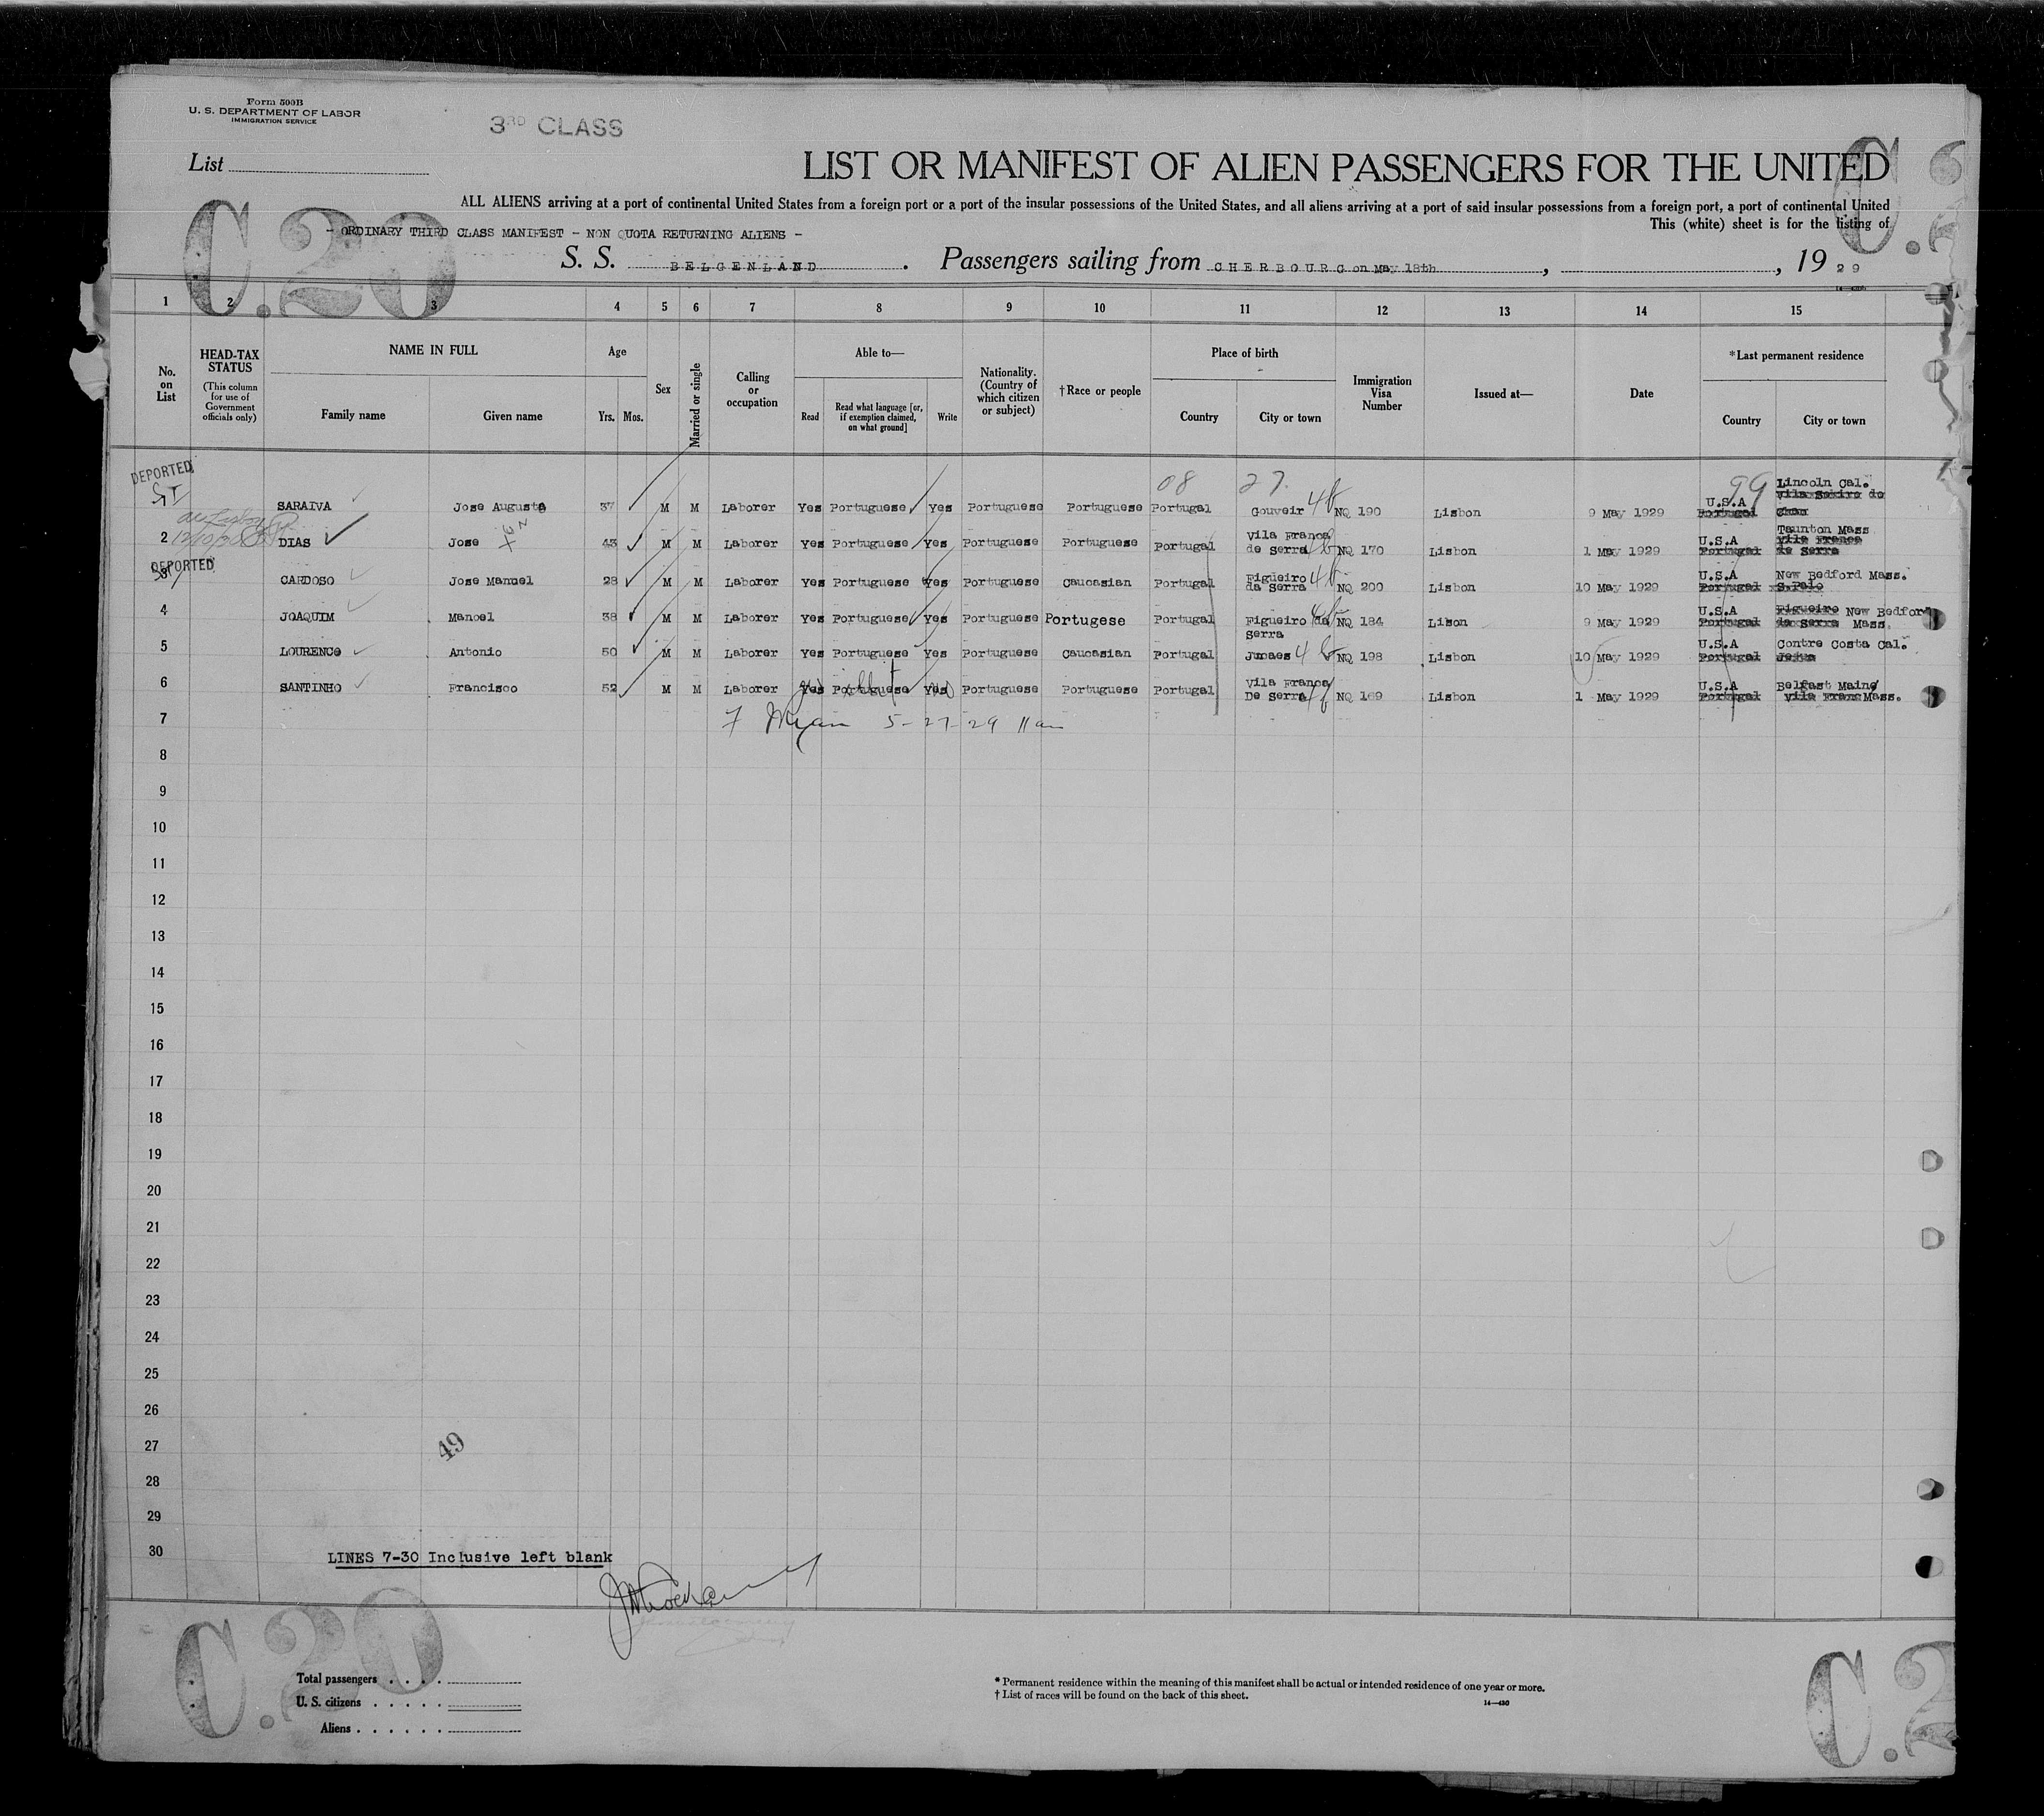 Form 500B
U. S. DEPARTMENT OF LABOR
IMMIGRATION SERVICE
3RD CLASS
List
LIST OR MANIFEST OF ALIEN PASSENGERS FOR THE UNITED
ALL ALIENS arriving at a port of continental United States from a foreign port or a port of the insular possessions of the United States, and all aliens arriving at a port of said insular possessions from a foreign port, a port of continental United
This (white) sheet is for the listing of
C.20
C.2
- ORDINARY THIRD CLASS MANIFEST - NON QUOTA RETURNING ALIENS -
S. S. BELGENLAND. Passengers sailing from CHERBOURG on May 18th, , 1929
1 2 3 4 5 6 7 8 9 10 11 12 13 14 15
No. on List
HEAD-TAX STATUS (This column for use of Government officials only)
NAME IN FULL Family name Given name
Age Yrs. Mos.
Sex
Married or single
Calling or occupation
Able to— Read Read what language [or, if exemption claimed, on what ground] Write
Nationality. (Country of which citizen or subject)
†Race or people
Place of birth Country City or town
Immigration Visa Number
Issued at—
Date
*Last permanent residence Country City or town
DEPORTED
08 27. 99
1 SARAIVA Jose Augusto 37 M M Laborer Yes Portuguese Yes Portuguese Portuguese Portugal Gouveir NQ 190 Lisbon 9 May 1929 U.S.A Portugal Lincoln Cal.
2 DIAS Jose 43 M M Laborer Yes Portuguese Yes Portuguese Portuguese Portugal Vila Franca de Serra NQ 170 Lisbon 1 May 1929 U.S.A Portugal Taunton Mass Vila Franca de Serra
DEPORTED
3 CARDOSO Jose Manuel 28 M M Laborer Yes Portuguese Yes Portuguese Caucasian Portugal Figueiro da Serra NQ 200 Lisbon 10 May 1929 U.S.A Portugal New Bedford Mass. S.Palo
4 JOAQUIM Manoel 38 M M Laborer Yes Portuguese Yes Portuguese Portugese Portugal Figueiro da Serra NQ 184 Lison 9 May 1929 U.S.A Portugal Figueiro da Serra New Bedford Mass.
5 LOURENCO Antonio 50 M M Laborer Yes Portuguese Yes Portuguese Caucasian Portugal NQ 198 Lisbon 10 May 1929 U.S.A Portugal Contre Costa Cal.
6 SANTINHO Francisco 52 M M Laborer Yes Portuguese Yes Portuguese Portuguese Portugal Vila Franca De Serra NQ 169 Lisbon 1 May 1929 U.S.A Portugal Belfast Maine Vila Franc Mass.
7 5-27-29 11 am
8
9
10
11
12
13
14
15
16
17
18
19
20
21
22
23
24
25
26
27
49
28
29
30
LINES 7-30 Inclusive left blank
C.20
C.2
Total passengers
U. S. citizens
Aliens
* Permanent residence within the meaning of this manifest shall be actual or intended residence of one year or more.
† List of races will be found on the back of this sheet.
14—430